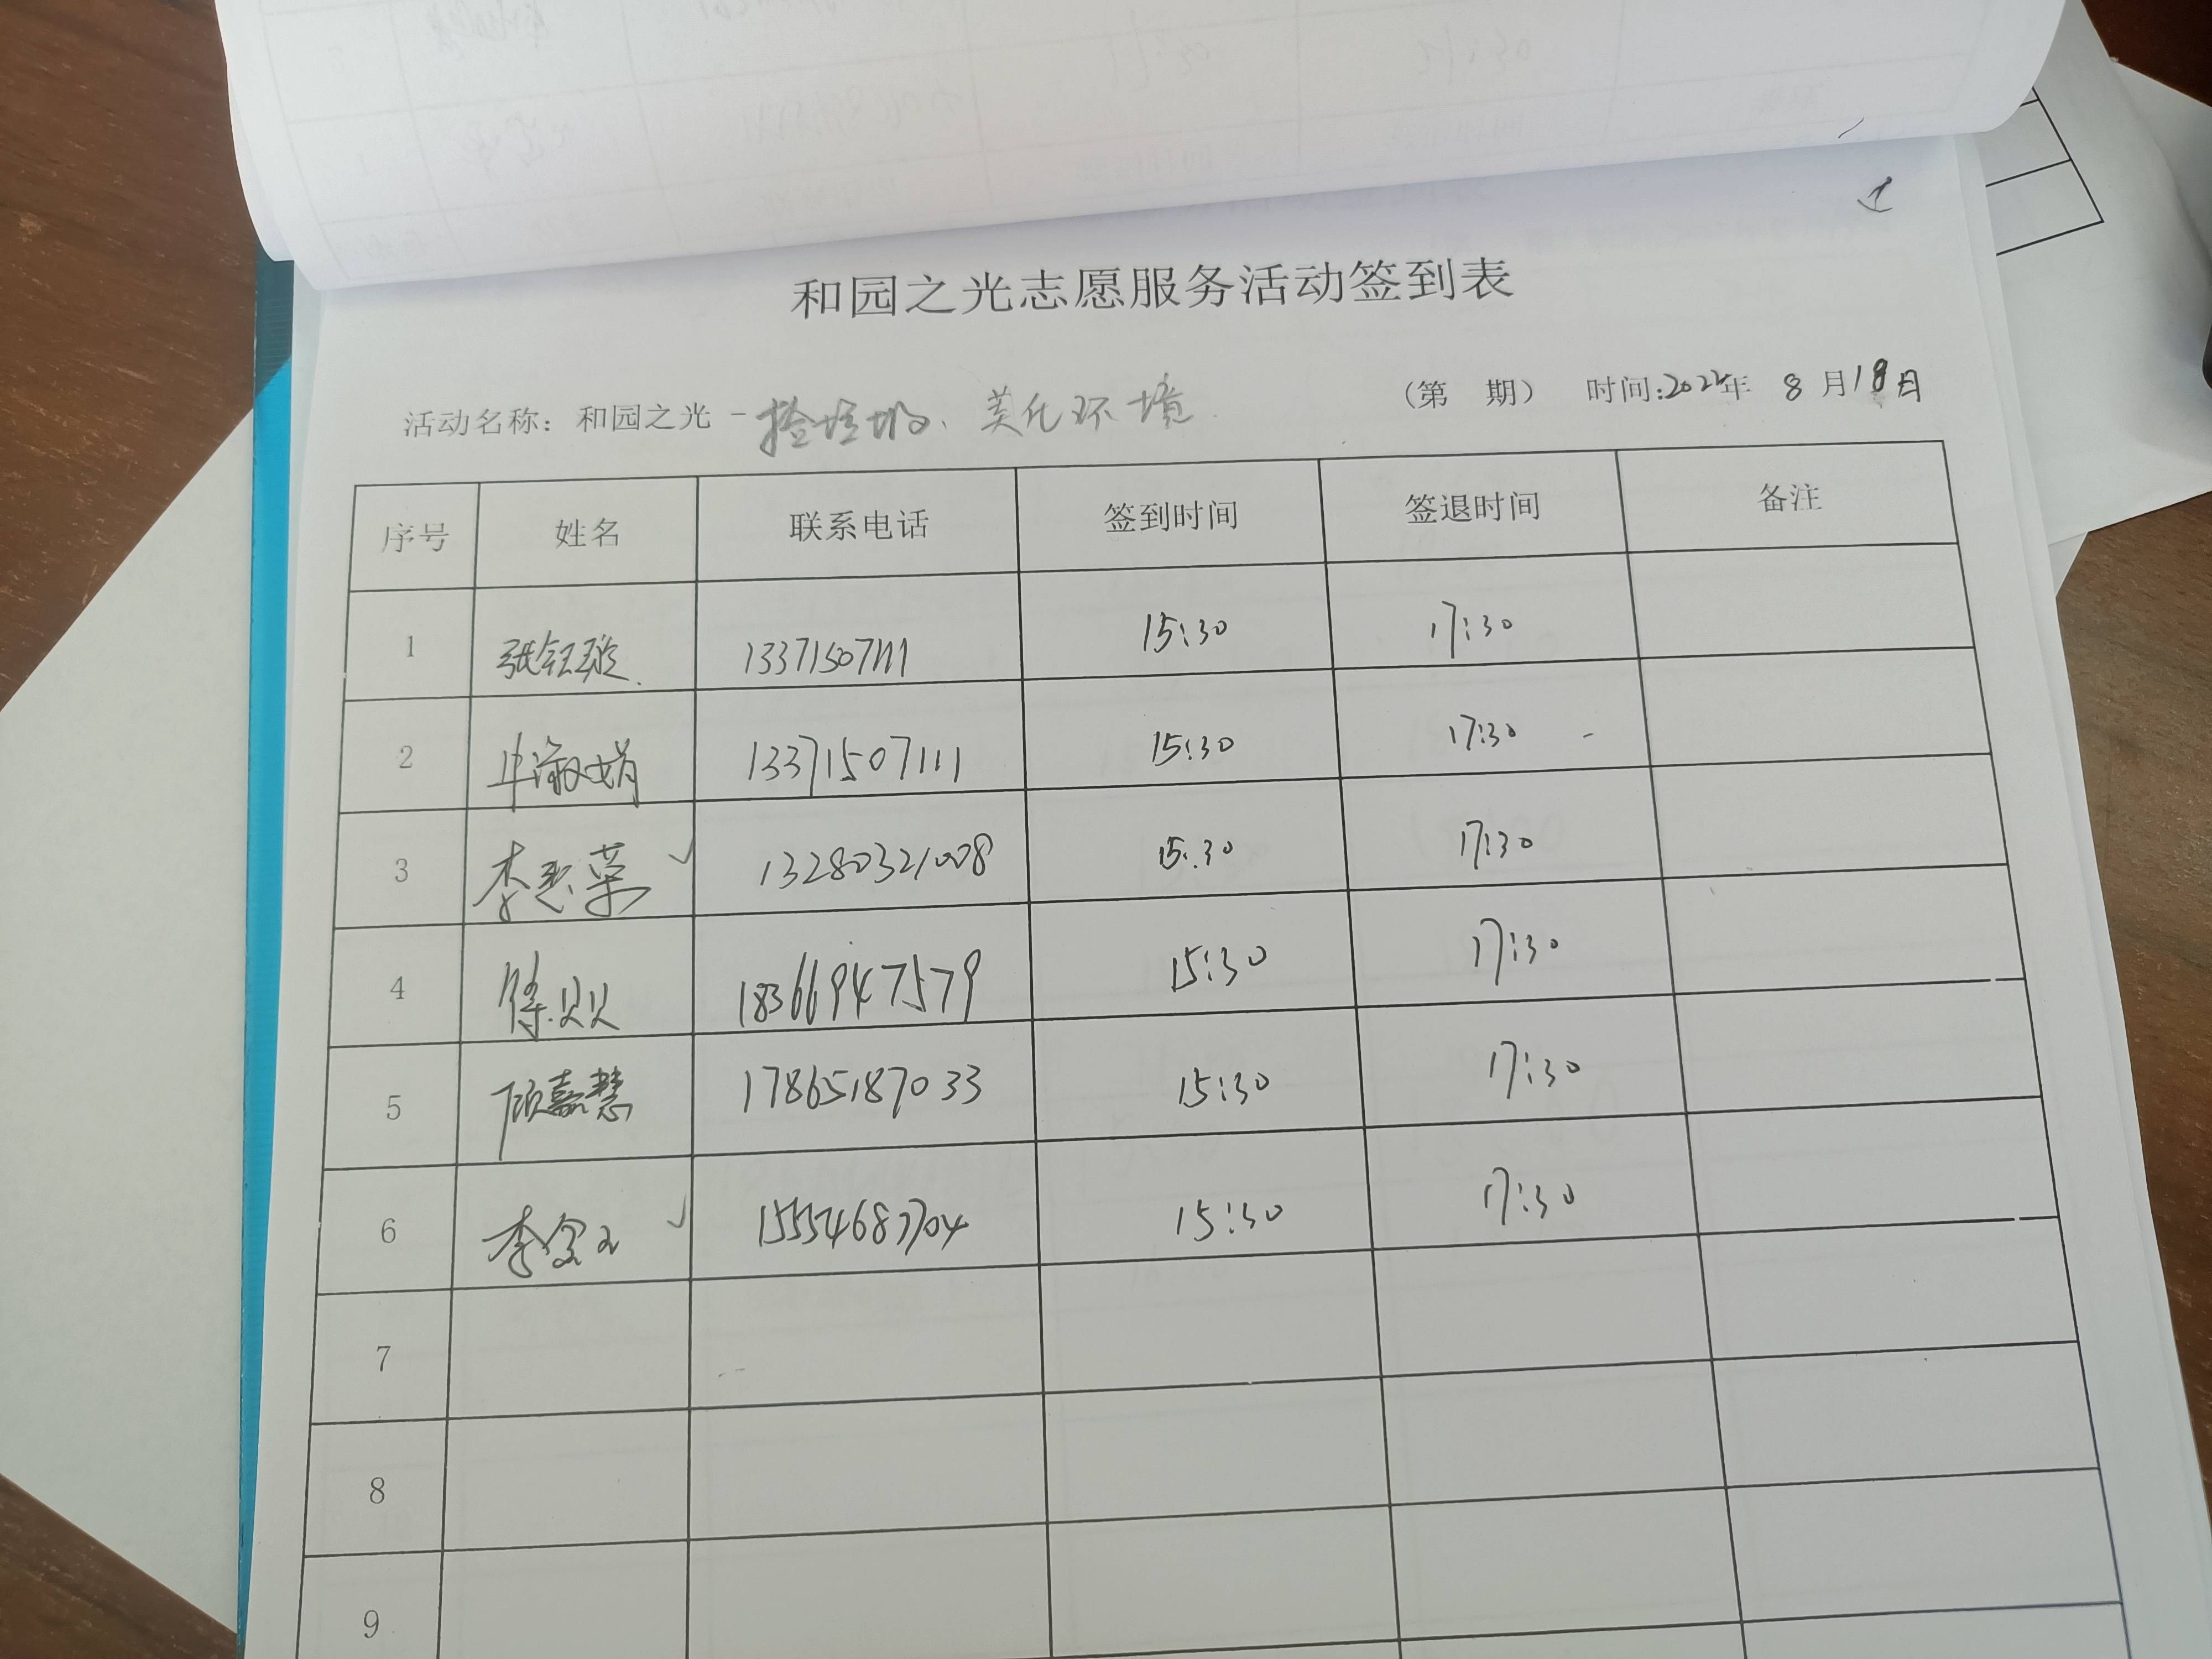 和园之光志愿服务活动签到表
活动名称: 和园之光 - 捡垃圾、美化环境 (第 期) 时间:2022年 8月18日
序号 姓名 联系电话 签到时间 签退时间 备注
1 张钰璇 13371507111 15:30 17:30
2 毕淑娟 13371507111 15:30 17:30
3 李秀荣 13280321008 15:30 17:30
4 徐贝贝 18366947579 15:30 17:30
5 顾嘉慧 17865187033 15:30 17:30
6 李 15554687704 15:30 17:30
7
8
9